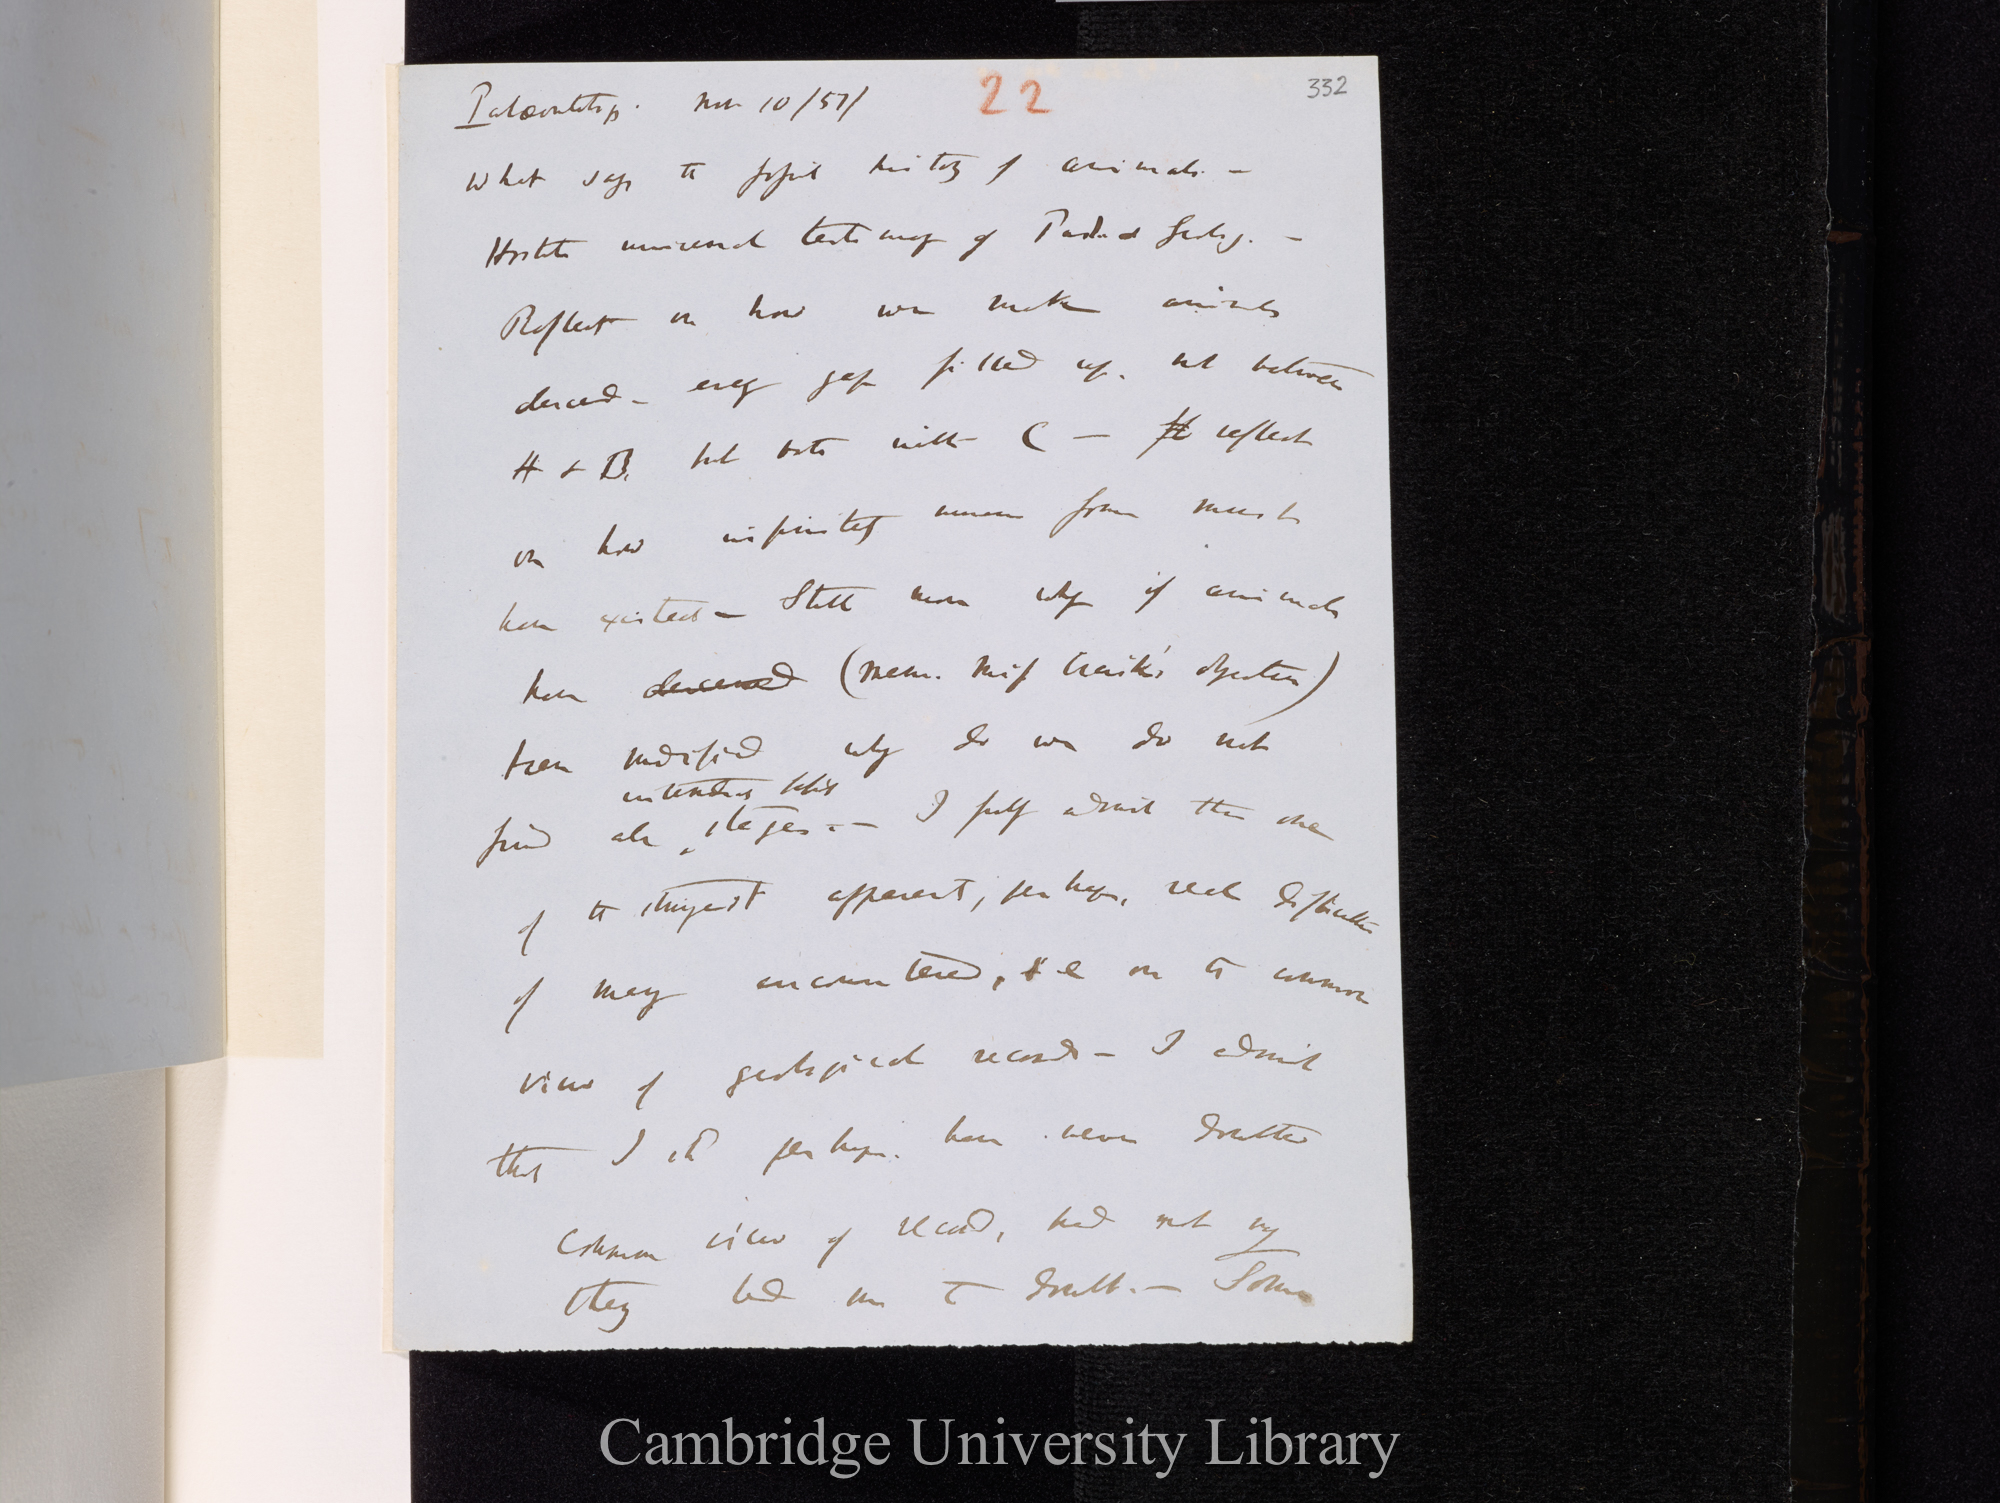 Palæontology. Nov 10/57/ 22 332
What says the fossil history of animals. —
Hostile universal testimony of Geology. —
Reflect on how we make animals
descend — every gap filled up. not between
H & B. but both with C — reflect
on how infinitely numerous forms must
have existed — Still more why if animals
have descended (Mem. Miss objection)
been modified why do we do not
intermediate
find all stages. — I fully admit the one
of the strongest apparent, perhaps, real difficulties
of many encountered, on the common
view of geological records — I admit
that I shd perhaps. have never doubted
common view of record, had not my
theory led me to doubt. — Some
Cambridge University Library